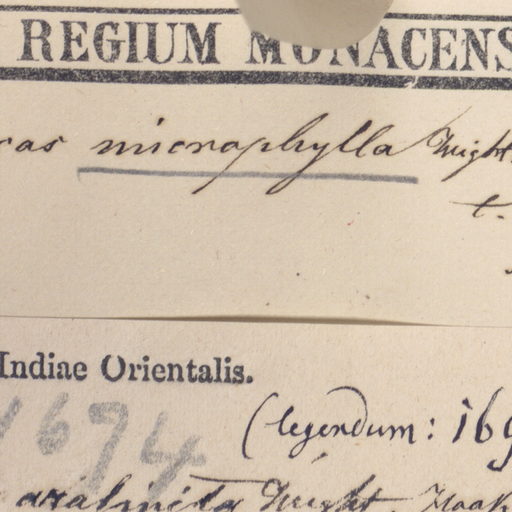 REGIUM MONACENS
ras microphylla Wight
t.
Indiae Orientalis.
1694
(legendum: 169
Wight. Hook